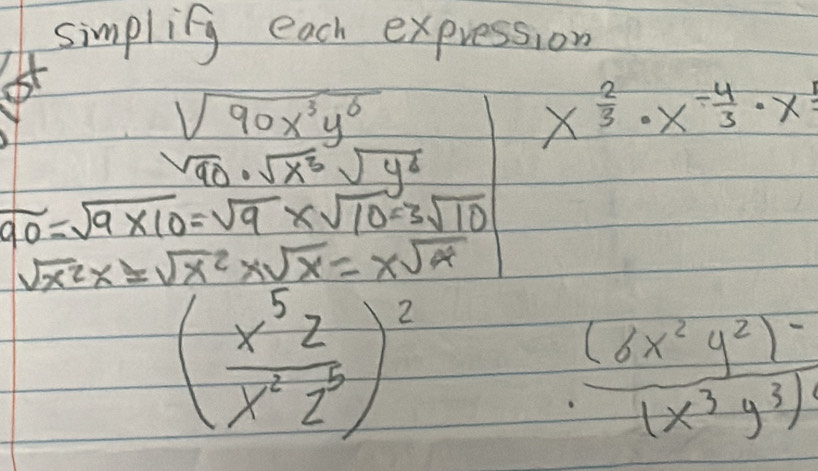 simplify each expression
√(90x³y⁶)
√90 · √x³ √y⁶
√90 = √(9×10) = √9 × √10 = 3√10
√x²x = √x² × √x = x√x
x^(2/3) · x^(-4/3) · x
(x⁵z / x²z⁵)²
(6x²y²)⁻ / (x³y³)